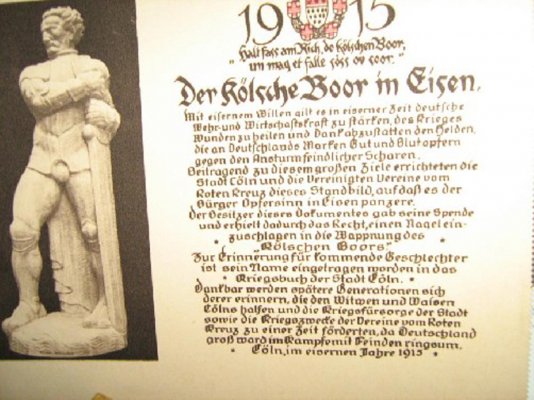 1915
"Halt fass am Rich, do kölschen Boor,
un mag et falle söss ov soor."
Der Kölsche Boor in Eisen.
Mit eisernem Willen gilt es in eiserner Zeit deutsche
Wehr- und Wirtschaftskraft zu stärken, des Krieges
Wunden zu heilen und Dank abzustatten den Helden,
die an Deutschlands Marken Gut und Blut opfern
gegen den Ansturm feindlicher Scharen.
Beitragend zu diesem großen Ziele errichteten die
Stadt Cöln und die Vereinigten Vereine vom
Roten Kreuz dieses Standbild, auf daß es der
Bürger Opfersinn in Eisen panzere.
Der Besitzer dieses Dokumentes gab seine Spende
und erhielt dadurch das Recht, einen Nagel ein-
zuschlagen in die Wappnung des
"Kölschen Boors"
Zur Erinnerung für kommende Geschlechter
ist sein Name eingetragen worden in das
Kriegsbuch der Stadt Cöln.
Dankbar werden spätere Generationen sich
derer erinnern, die den Witwen und Waisen
Cölns halfen und die Kriegsfürsorge der Stadt
sowie die Kriegszwecke der Vereine vom Roten
Kreuz zu einer Zeit förderten, da Deutschland
groß ward im Kampfe mit Feinden ringsum.
Cöln, im eisernen Jahre 1915